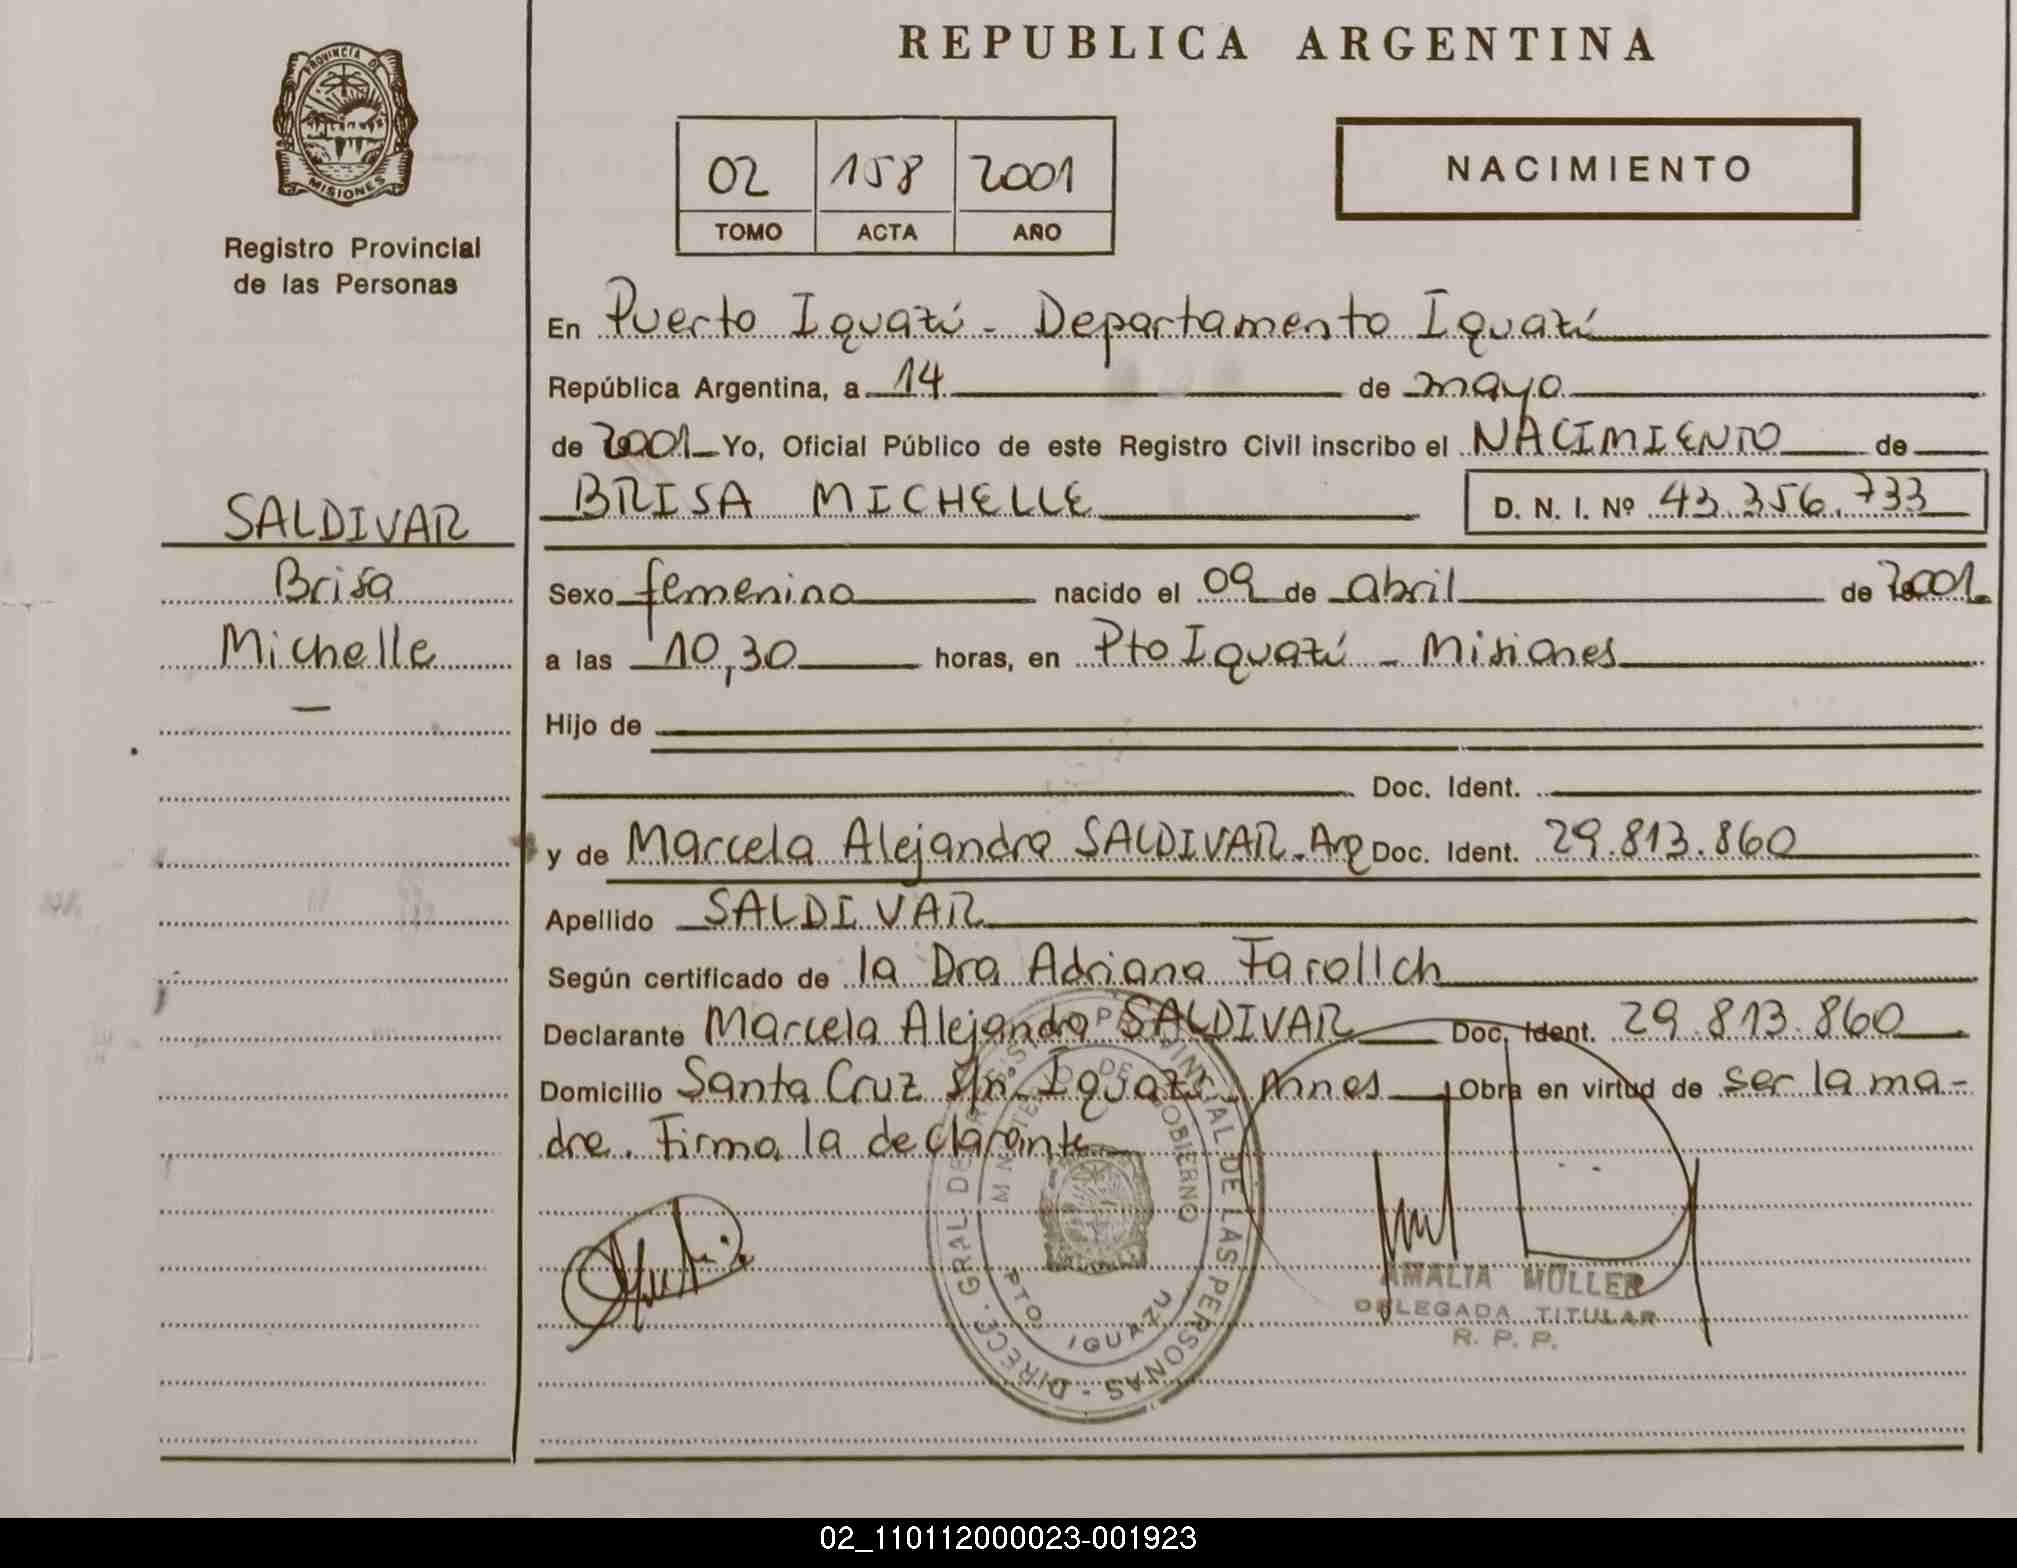 REPUBLICA ARGENTINA
PROVINCIA DE
MISIONES
Registro Provincial
de las Personas
02 158 2001
TOMO ACTA AÑO
NACIMIENTO
SALDIVAR
Brisa
Michelle
En Puerto Iguazú - Departamento Iguazú
República Argentina, a 14 de mayo
de 2001 Yo, Oficial Público de este Registro Civil inscribo el NACIMIENTO de
BRISA MICHELLE D. N. I. Nº 43.356.733
Sexo femenino nacido el 09 de abril de 2001
a las 10,30 horas, en Pto Iguazú - Misiones
Hijo de
Doc. Ident.
y de Marcela Alejandra SALDIVAR. Arg Doc. Ident. 29.813.860
Apellido SALDIVAR
Según certificado de la Dra Adriana
Declarante Marcela Alejandra SALDIVAR Doc. Ident. 29.813.860
Domicilio Santa Cruz s/nº Iguazú - Mnes Obra en virtud de ser la ma-
dre. Firma la declarante
DIRECC. GRAL DE REGISTRO PROVINCIAL DE LAS PERSONAS -
MINISTERIO DE GOBIERNO
PTO. IGUAZU
AMALIA MÜLLER
DELEGADA TITULAR
R. P. P.
02_110112000023-001923